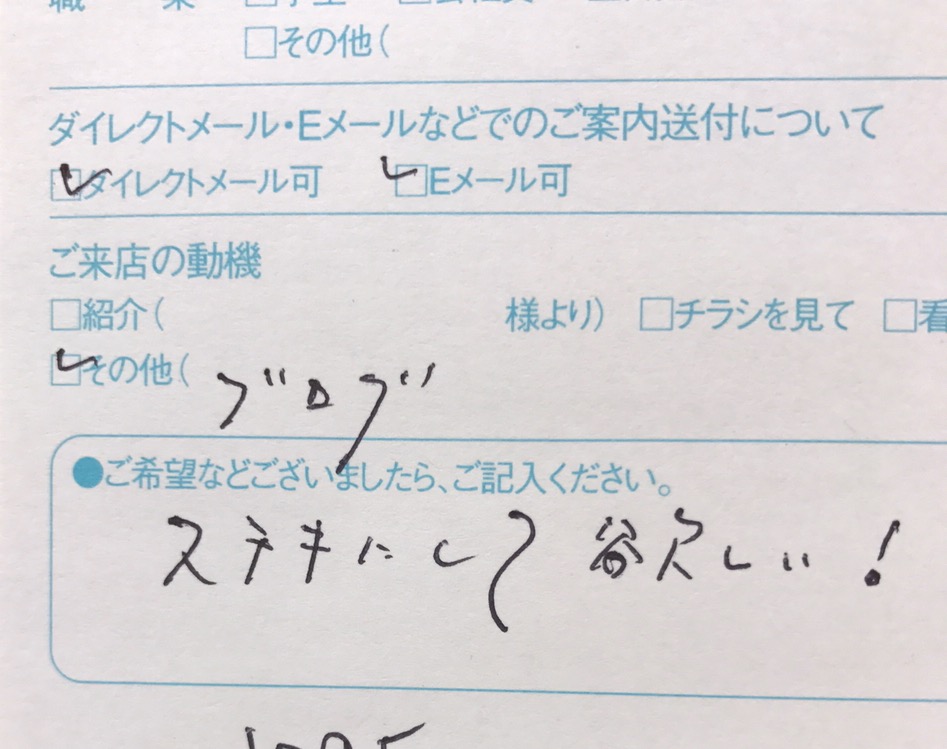 職 業 □学生 □会社員
□その他(
ダイレクトメール・Eメールなどでのご案内送付について
☑ダイレクトメール可 ☑Eメール可
ご来店の動機
□紹介( 様より) □チラシを見て □看
☑その他( ブログ
●ご希望などございましたら、ご記入ください。
ステキにして欲しい!